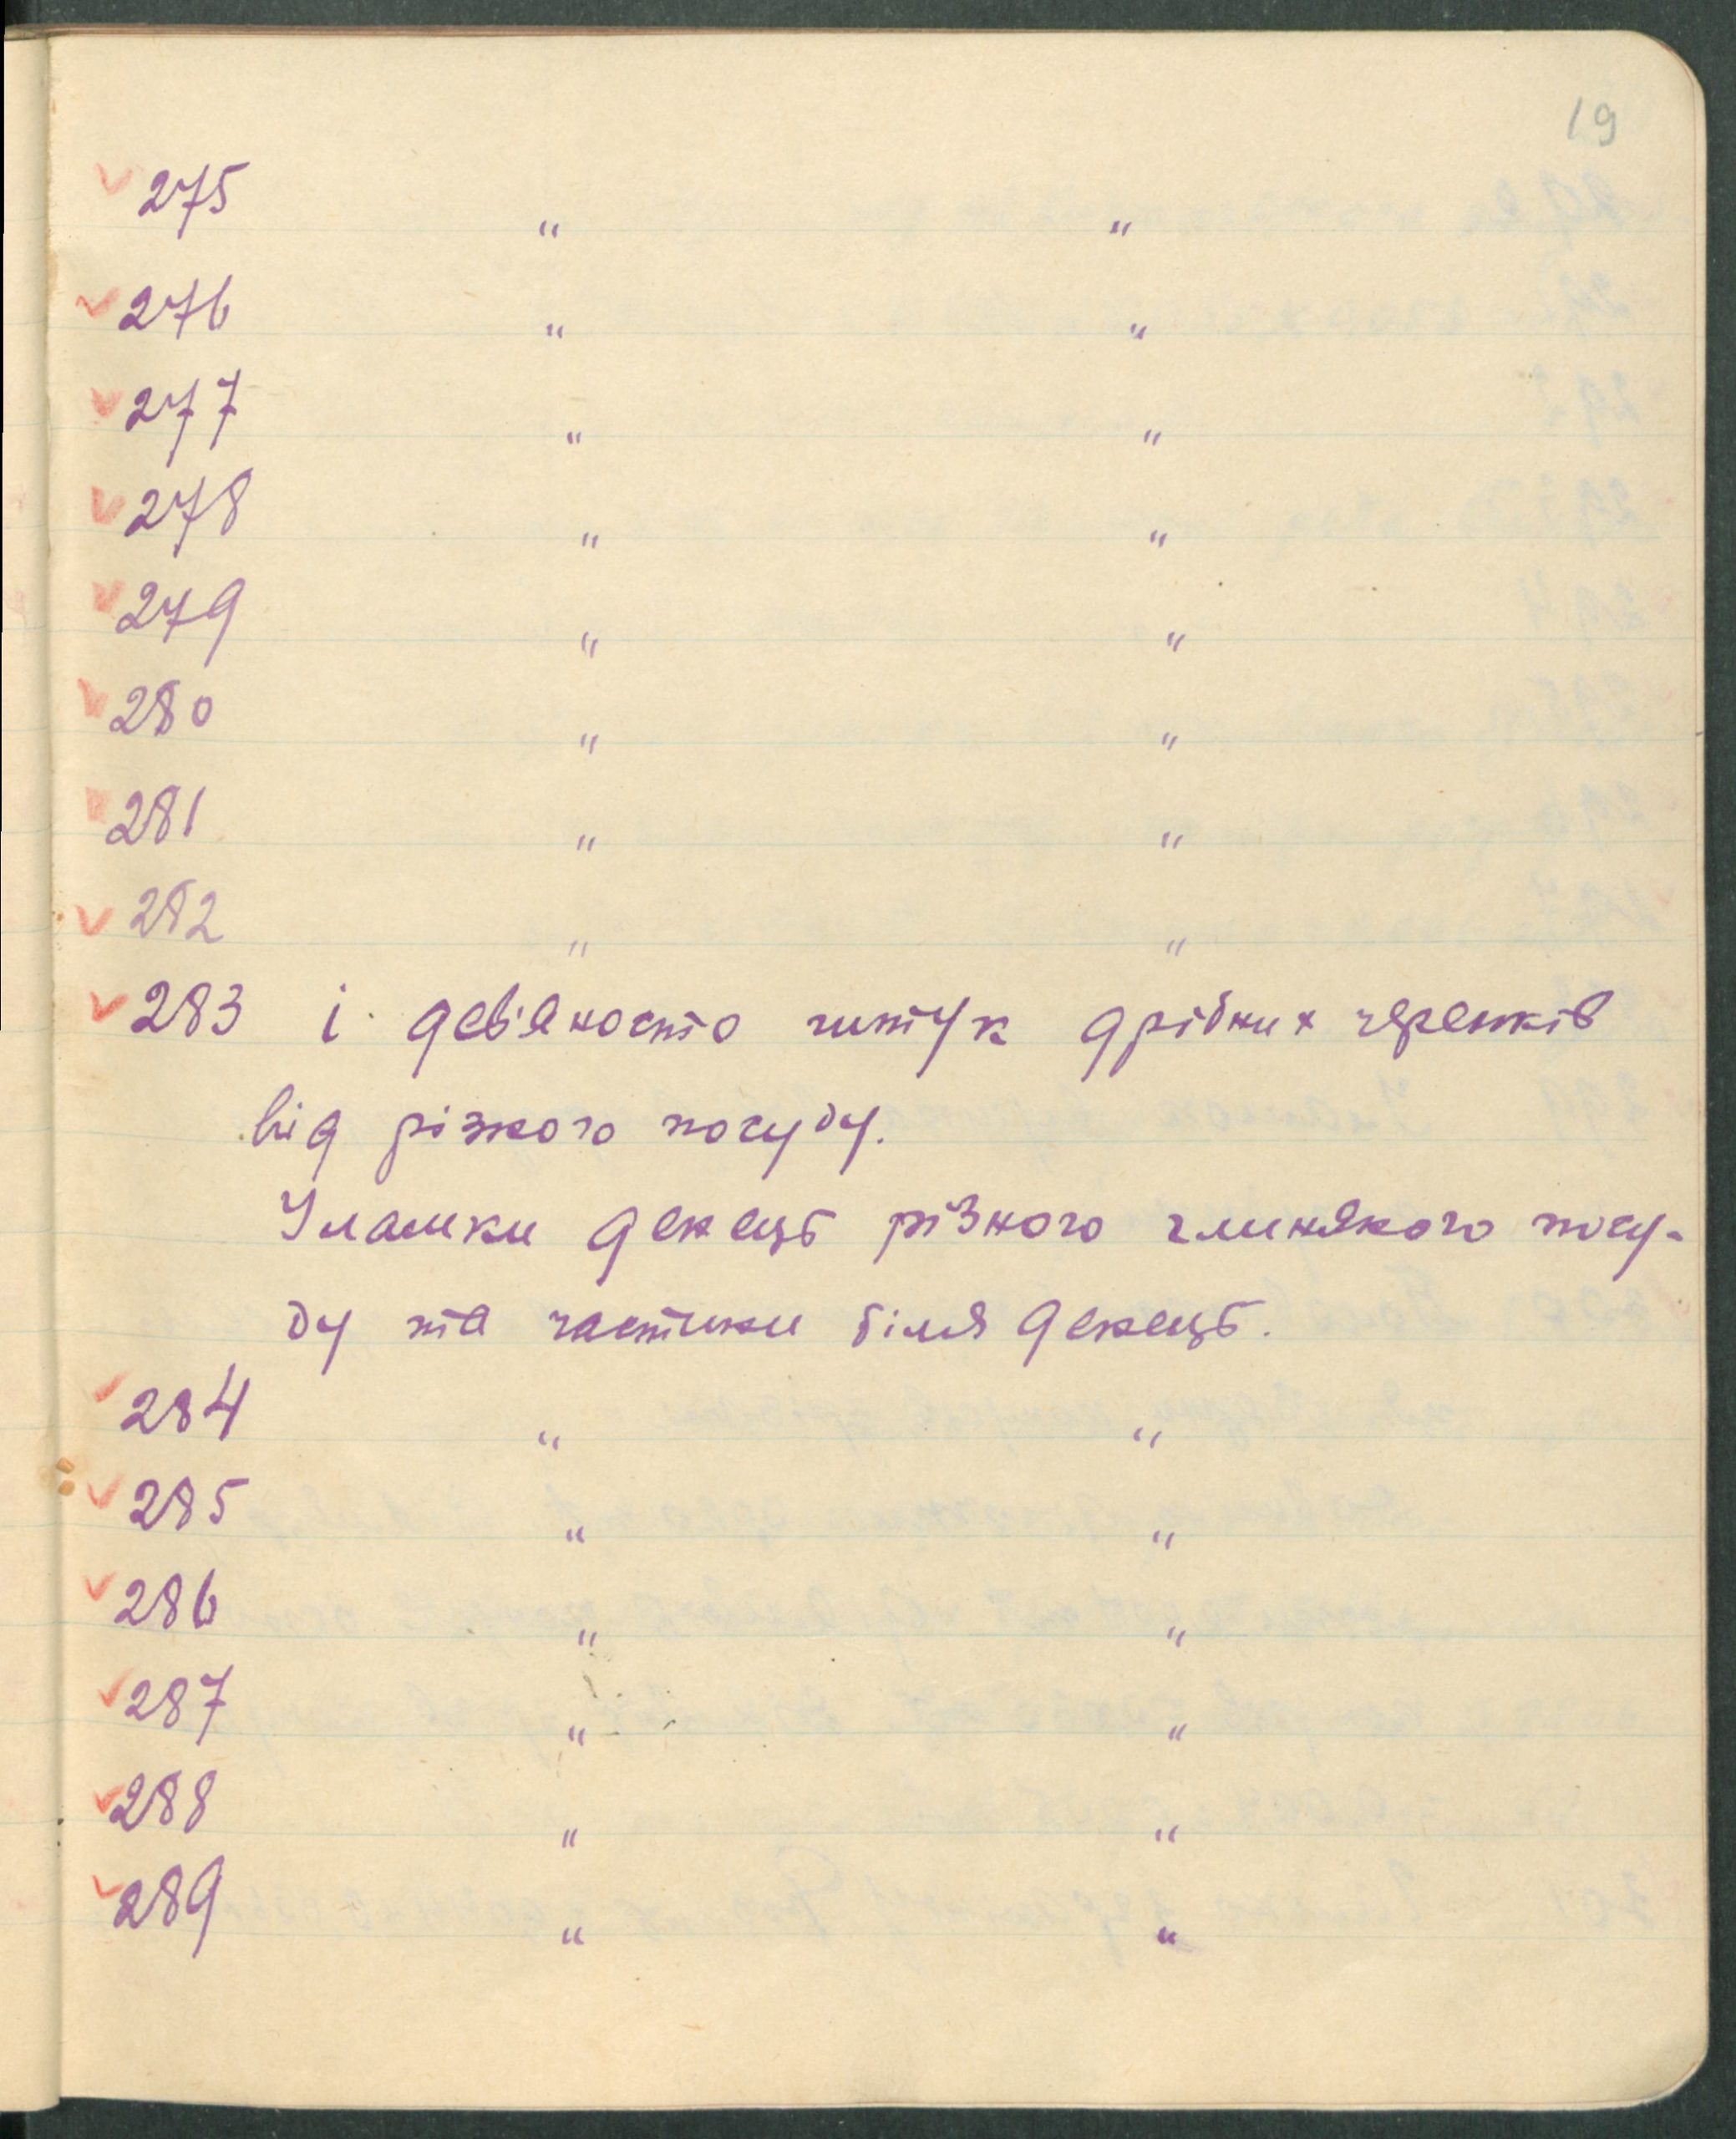 19
✓ 275 " "
✓ 276 " "
✓ 277 " "
✓ 278 " "
✓ 279 " "
✓ 280 " "
✓ 281 " "
✓ 282 " "
✓ 283 і дев'яносто штук дрібних черепків
від різного посуду.
Уламки денець різного глиняного посу-
ду та частики біля денець.
✓ 284 " "
✓ 285 " "
✓ 286 " "
✓ 287 " "
✓ 288 " "
✓ 289 " "